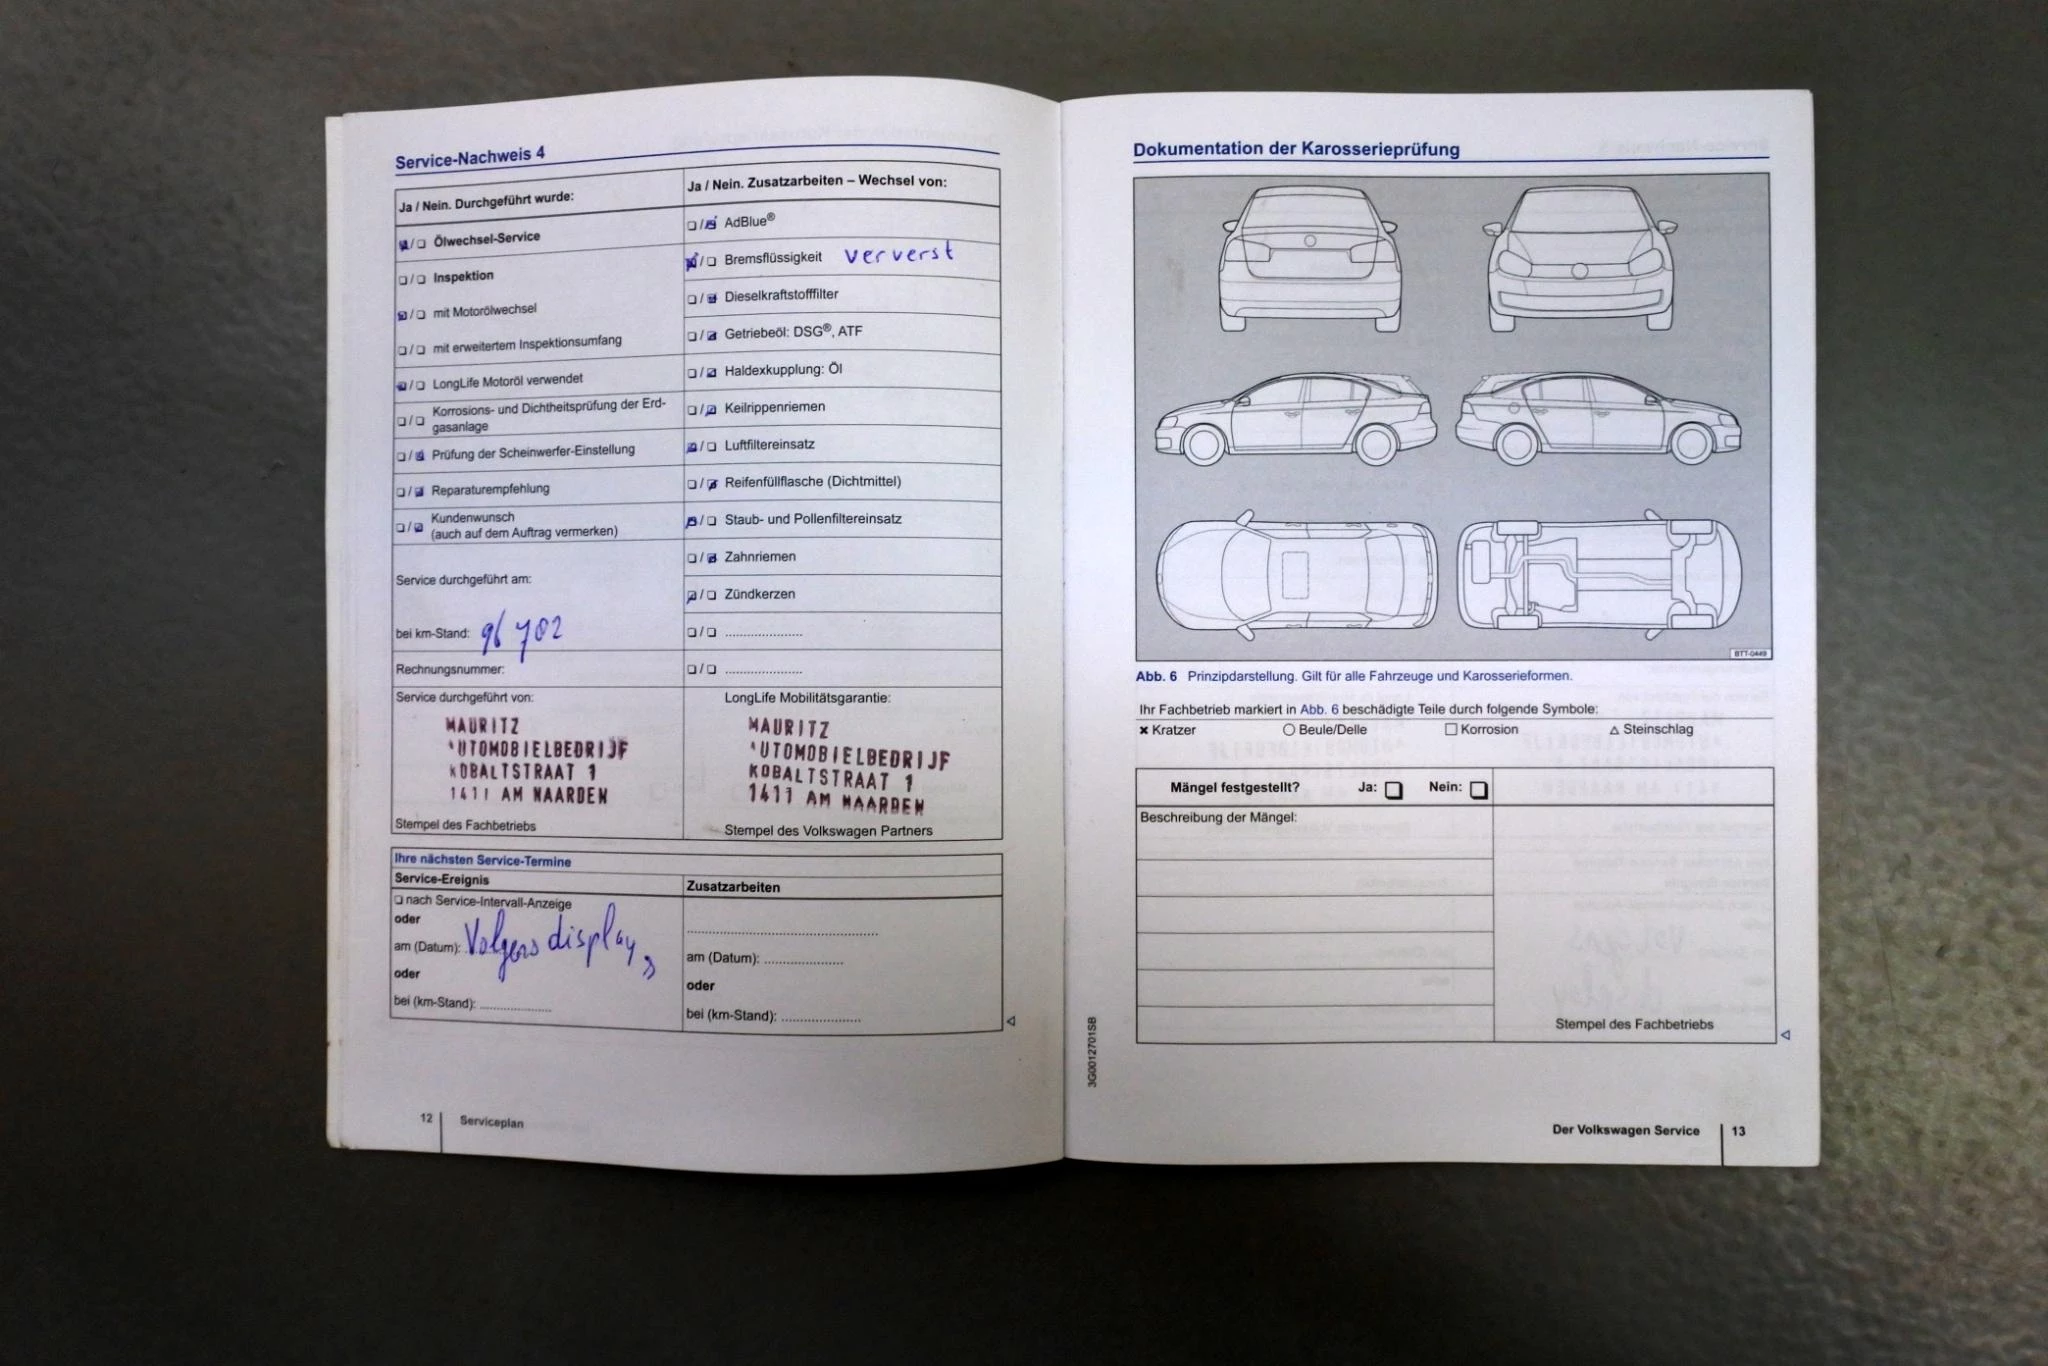 Service-Nachweis 4
Ja / Nein. Durchgeführt wurde:
Ölwechsel-Service
Inspektion
mit Motorölwechsel
mit erweitertem Inspektionsumfang
LongLife Motoröl verwendet
Korrosions- und Dichtheitsprüfung der Erd-
gasanlage
Prüfung der Scheinwerfer-Einstellung
Reparaturempfehlung
Kundenwunsch
(auch auf dem Auftrag vermerken)
Service durchgeführt am:
bei km-Stand: 96 702
Rechnungsnummer:
Ja / Nein. Zusatzarbeiten – Wechsel von:
AdBlue®
Bremsflüssigkeit ververst
Dieselkraftstofffilter
Getriebeöl: DSG®, ATF
Haldexkupplung: Öl
Keilrippenriemen
Luftfiltereinsatz
Reifenfüllflasche (Dichtmittel)
Staub- und Pollenfiltereinsatz
Zahnriemen
Zündkerzen
Service durchgeführt von:
MAURITZ
AUTOMOBIELBEDRIJF
KOBALTSTRAAT 1
1411 AM NAARDEN
Stempel des Fachbetriebs
LongLife Mobilitätsgarantie:
MAURITZ
AUTOMOBIELBEDRIJF
KOBALTSTRAAT 1
1411 AM NAARDEN
Stempel des Volkswagen Partners
Ihre nächsten Service-Termine
Service-Ereignis
nach Service-Intervall-Anzeige
oder
am (Datum): Volgens display
oder
bei (km-Stand):
Zusatzarbeiten
am (Datum):
oder
bei (km-Stand):
12 Serviceplan
Dokumentation der Karosserieprüfung
BTT-0449
Abb. 6 Prinzipdarstellung. Gilt für alle Fahrzeuge und Karosserieformen.
Ihr Fachbetrieb markiert in Abb. 6 beschädigte Teile durch folgende Symbole:
Kratzer Beule/Delle Korrosion Steinschlag
Mängel festgestellt? Ja: Nein:
Beschreibung der Mängel:
Stempel des Fachbetriebs
3G0012701SB
Der Volkswagen Service 13